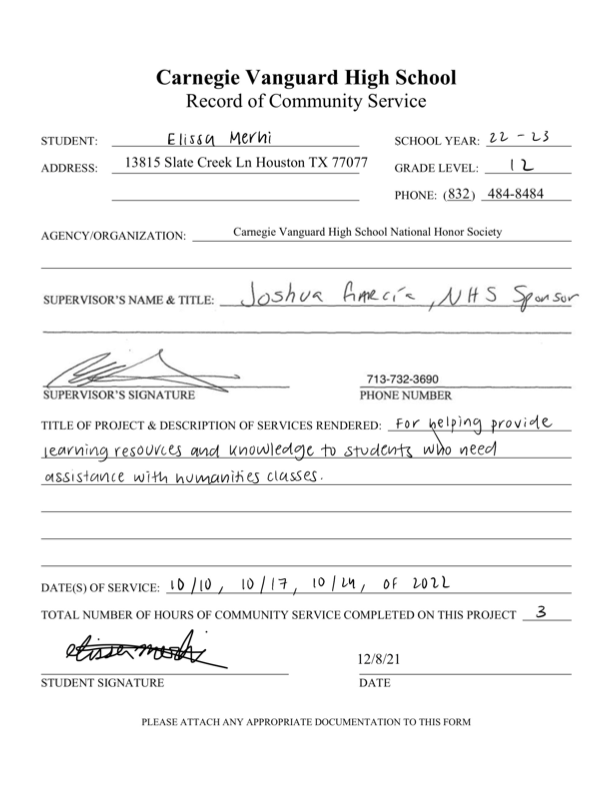 Carnegie Vanguard High School
Record of Community Service
STUDENT: Elissa Merhi SCHOOL YEAR: 22 - 23
ADDRESS: 13815 Slate Creek Ln Houston TX 77077 GRADE LEVEL: 12
PHONE: (832) 484-8484
AGENCY/ORGANIZATION: Carnegie Vanguard High School National Honor Society
SUPERVISOR'S NAME & TITLE: Joshua Garcia, NHS Sponsor
713-732-3690
SUPERVISOR'S SIGNATURE PHONE NUMBER
TITLE OF PROJECT & DESCRIPTION OF SERVICES RENDERED: For helping provide
learning resources and knowledge to students who need
assistance with humanities classes.
DATE(S) OF SERVICE: 10/10, 10/17, 10/24, OF 2022
TOTAL NUMBER OF HOURS OF COMMUNITY SERVICE COMPLETED ON THIS PROJECT 3
elissa merhi 12/8/21
STUDENT SIGNATURE DATE
PLEASE ATTACH ANY APPROPRIATE DOCUMENTATION TO THIS FORM